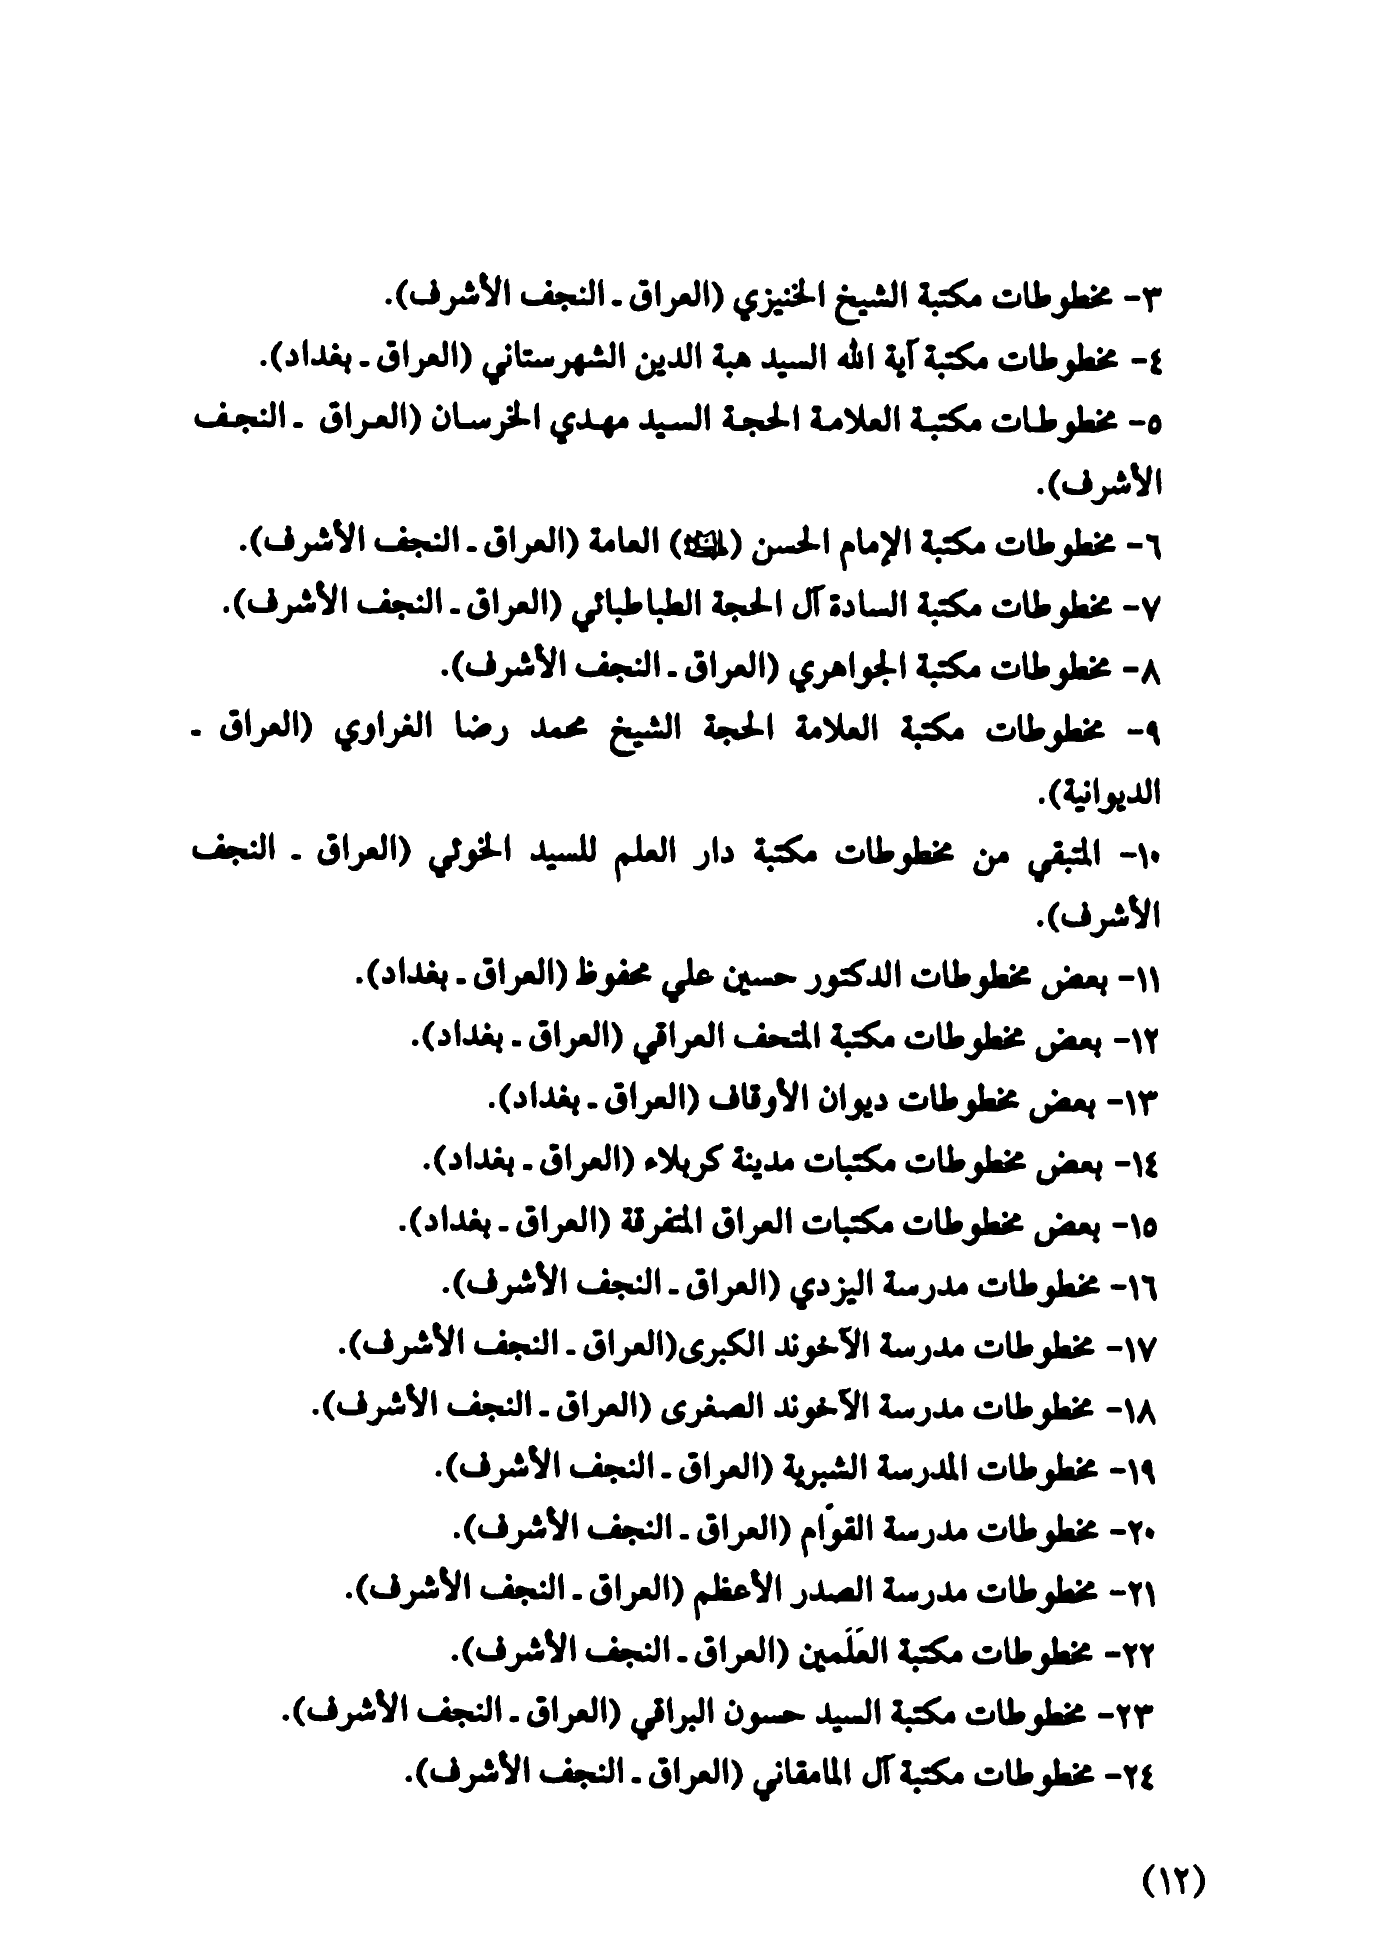 ٣- مخطوطات مكتبة الشيخ الخنيزي (العراق ـ النجف الأشرف).
٤- مخطوطات مكتبة آية الله السيد هبة الدين الشهرستاني (العراق ـ بغداد).
٥- مخطوطات مكتبة العلامة الحجة السيد مهدي الخرسان (العراق ـ النجف
الأشرف).
٦- مخطوطات مكتبة الإمام الحسن () العامة (العراق ـ النجف الأشرف).
٧- مخطوطات مكتبة السادة آل الحجة الطباطبائي (العراق ـ النجف الأشرف).
٨- مخطوطات مكتبة الجواهري (العراق ـ النجف الأشرف).
٩- مخطوطات مكتبة العلامة الحجة الشيخ محمد رضا الغراوي (العراق ـ
الديوانية).
١٠- المتبقي من مخطوطات مكتبة دار العلم للسيد الخوئي (العراق ـ النجف
الأشرف).
١١- بعض مخطوطات الدكتور حسين علي محفوظ (العراق ـ بغداد).
١٢- بعض مخطوطات مكتبة المتحف العراقي (العراق ـ بغداد).
١٣- بعض مخطوطات ديوان الأوقاف (العراق ـ بغداد).
١٤- بعض مخطوطات مكتبات مدينة كربلاء (العراق ـ بغداد).
١٥- بعض مخطوطات مكتبات العراق المتفرقة (العراق ـ بغداد).
١٦- مخطوطات مدرسة اليزدي (العراق ـ النجف الأشرف).
١٧- مخطوطات مدرسة الآخوند الكبرى(العراق ـ النجف الأشرف).
١٨- مخطوطات مدرسة الآخوند الصغرى (العراق ـ النجف الأشرف).
١٩- مخطوطات المدرسة الشبرية (العراق ـ النجف الأشرف).
٢٠- مخطوطات مدرسة القوّام (العراق ـ النجف الأشرف).
٢١- مخطوطات مدرسة الصدر الأعظم (العراق ـ النجف الأشرف).
٢٢- مخطوطات مكتبة العَلَمين (العراق ـ النجف الأشرف).
٢٣- مخطوطات مكتبة السيد حسون البراقي (العراق ـ النجف الأشرف).
٢٤- مخطوطات مكتبة آل المامقاني (العراق ـ النجف الأشرف).
(١٢)